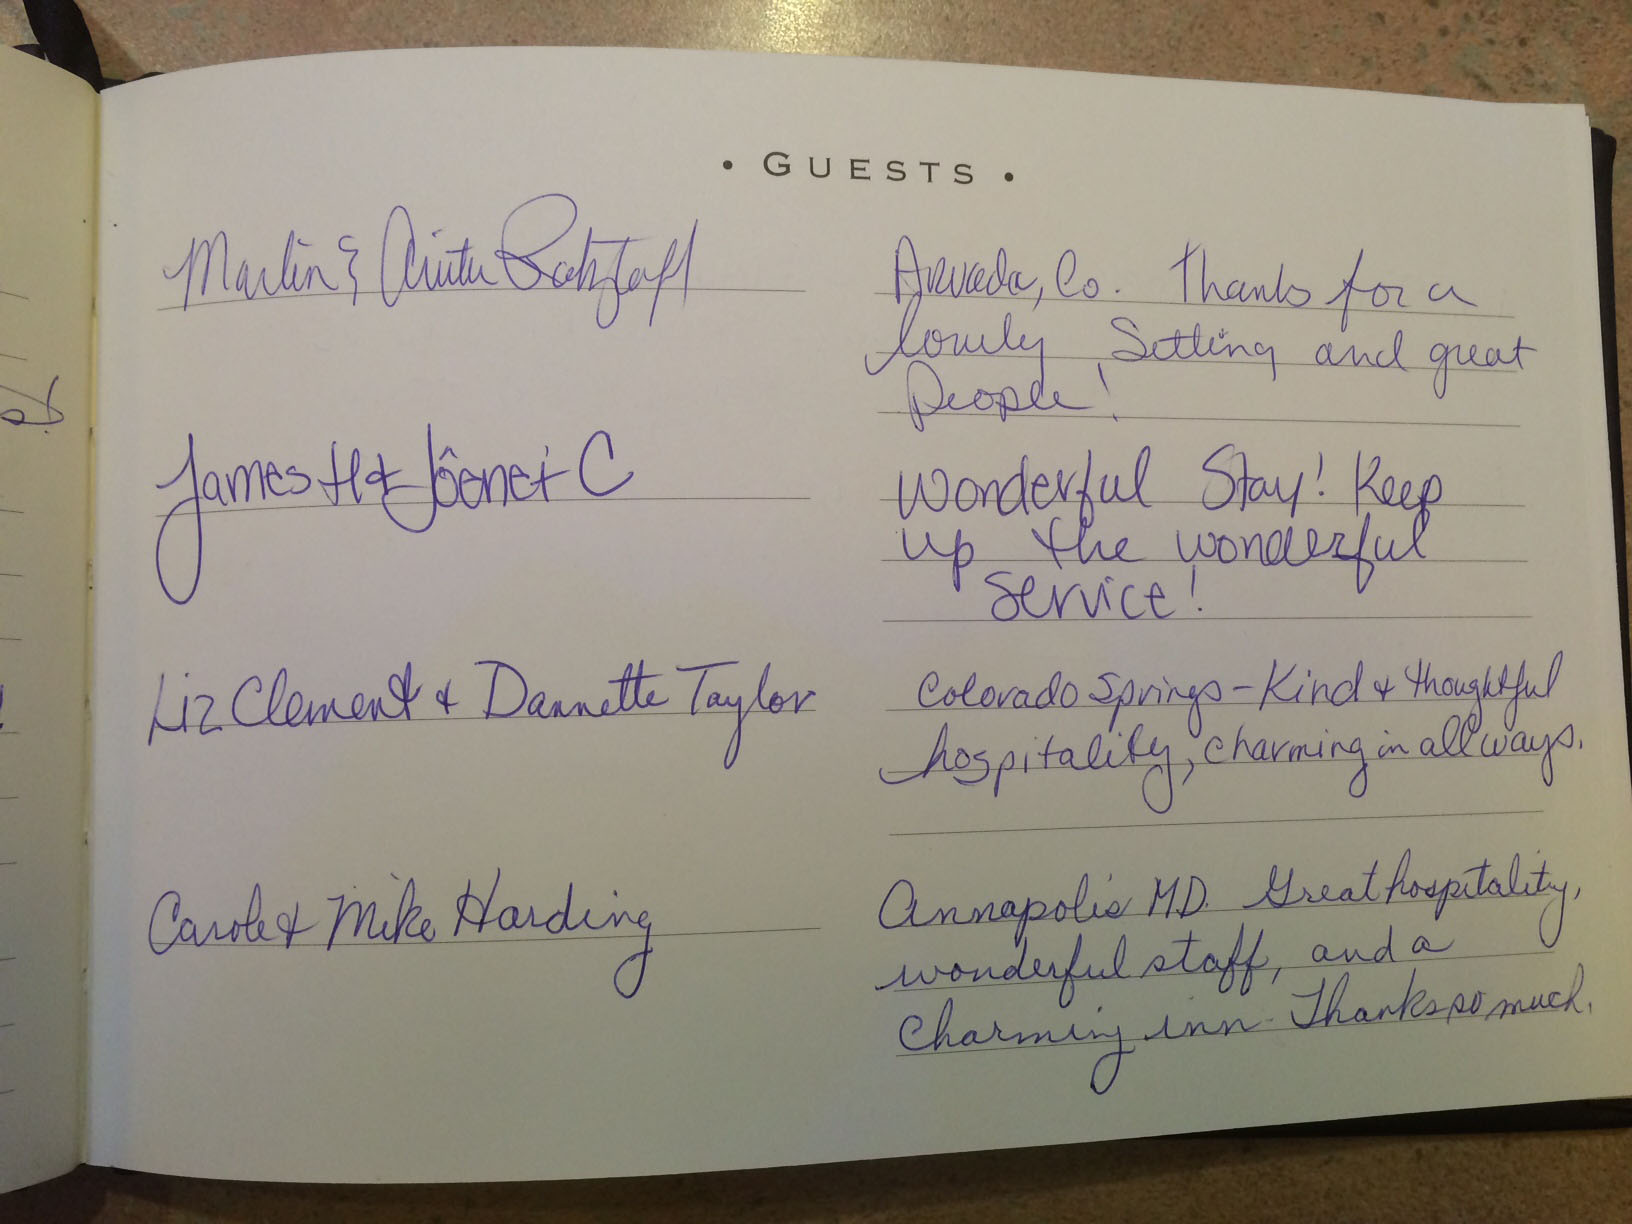 • GUESTS •
Marlin &
Arvada, Co. Thanks for a
lovely Setting and great
People!
James H & C
Wonderful Stay! Keep
up the wonderful
service!
Liz Clement & Dannette Taylor
Colorado Springs - Kind & thoughtful
hospitality, charming in all ways.
Carole & Mike Harding
Annapolis M.D. Great hospitality,
wonderful staff, and a
charming inn. Thanks so much.